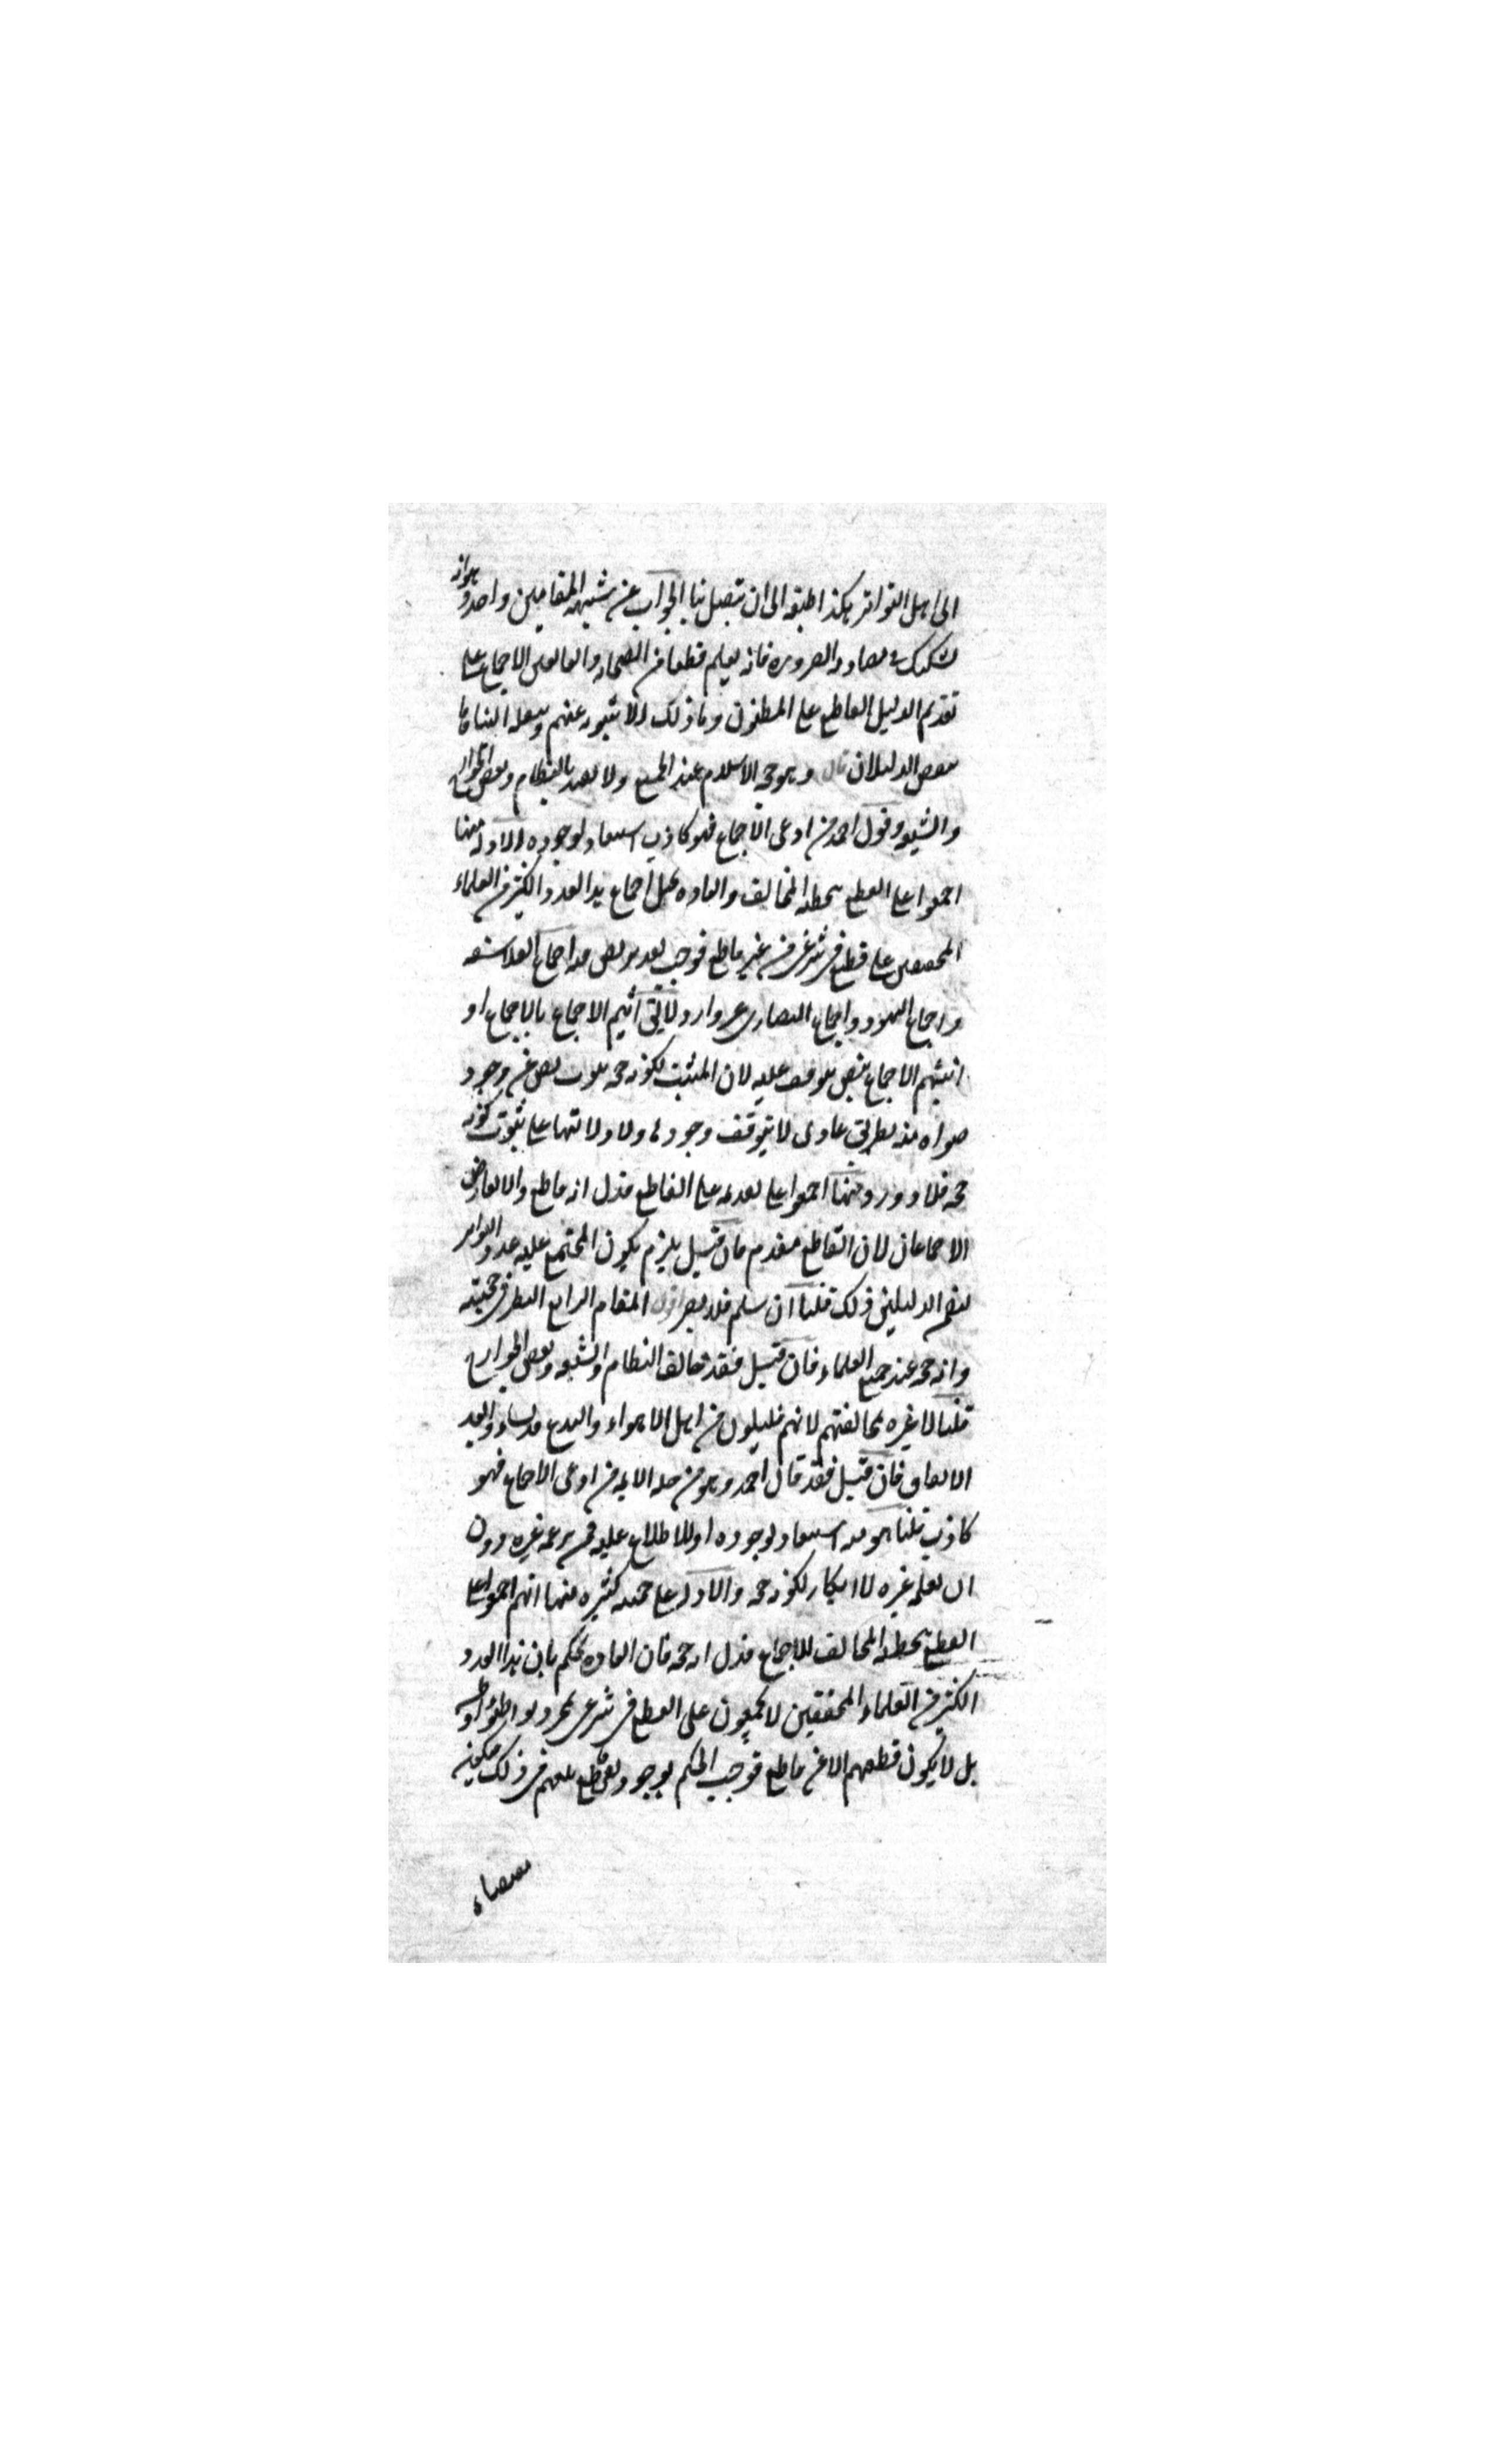 الى اهل التواتر هكذا طبقة الى ان تتصل بنا الجواب عن شبهة المقامين واحد وهو انه
تشكيك في مصادمة الضرورة فانه يعلم قطعا من الصحابة والتابعين الاجماع على
تقديم الدليل القاطع على المظنون وما ذلك الا بثبوته عنهم ونقله الينا فانتقض
الدليلان قال وهو حجة الاسلام عند الجميع ولا يعتد بالنظام وبعض الخوارج
والشيعة وقول احمد من ادعى الاجماع فهو كاذب استبعاد لوجوده الادلة منها
اجمعوا على القطع بتخطئة المخالف والعادة تحيل اجماع هذا العدد الكثير من العلماء
المحققين على قطع في شرعي من غير قاطع فوجب تقدير نص فيه اجماع الفلاسفة
واجماع اليهود واجماع النصارى غير وارد لا يقال اثبتم الاجماع بالاجماع او
اثبتم الاجماع بنص يتوقف عليه لان المثبت لكونه حجة ثبوت نص عن وجود
صورة منه بطريق عادى لا يتوقف وجودها ولا دلالتها على ثبوت كونه
حجة فلا دور ومنها اجمعوا على تقديمه على القاطع فدل انه قاطع والا تعارض
الاجماعان لان القاطع مقدم فان قيل يلزم بكون المجتمع عليه عدد التواتر
لتضمن الدليلين ذلك قلنا ان سلم فلا يضر اقول المقام الرابع النظر في حجيته
وانه حجة عند جميع العلماء فان قيل فقد خالف النظام والشيعة وبعض الخوارج
قلنا لا عبرة بمخالفتهم لانهم قليلون من اهل الاهواء والبدع قد نشاءوا بعد
الاتفاق فان قيل فقد قال احمد وهو من جلة الائمة من ادعى الاجماع فهو
كاذب قلنا هو منه استبعاد لوجوده او للاطلاع عليه فمن يزعمه غيره دون
ان يعلمه غيره لا انكار لكونه حجة والادلة على حجيته كثيرة منها انهم اجمعوا على
القطع بتخطئة المخالف للاجماع فدل انه حجة فان العادة تحكم بان هذا العدد
الكثير من العلماء المحققين لا يجمعون على القطع في شرعي بمجرد تواطؤ او ظن
بل لا يكون قطعهم الا عن قاطع فوجب الحكم بوجود نص قاطع بلغهم في ذلك فيكون
مقتضاه